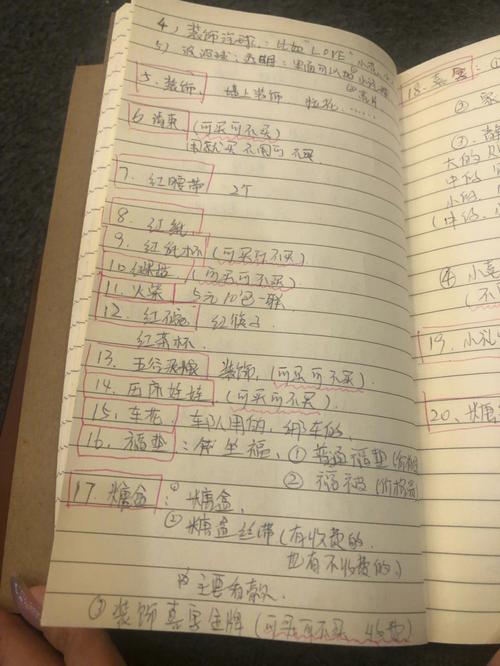 4、装饰汽球：比如"LOVE"小花
5）波波球：透明：里面可以放小花瓣
5. 装饰、墙上装饰 拉花......
6. 请柬（可买可不买）
用就买 不用可不买
7. 红腰带 2个
8. 红纸
9. 红纸杯（可买可不买）
10. （可买可不买）
11. 火柴 5元10包一联
12. 红碗 红筷子
红茶杯.
13. 五谷杂粮 装饰（可买可不买）.
14. 压床娃娃.（可买可不买）.
15. 车花. 车队用的, 绑车的.
16. 福垫：坐福、① 普通福垫（价格
② 福被（价格
17. 糖盒：① 糖盒.
② 糖盒丝带（有收费的.
也有不收费的）
主要看款.
③ 装饰喜字（可买可不买
18. 喜字：①
② 
③
大的
中的
小的
④ 小喜
（不
19. 小礼
20. 糖